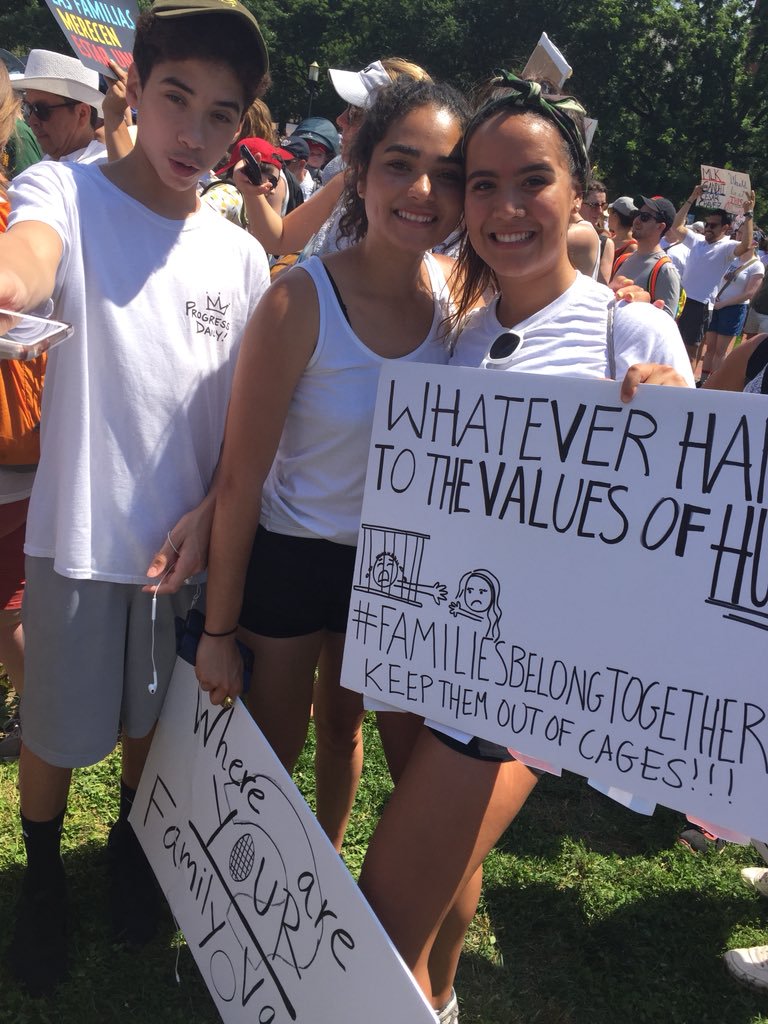 FAMILIAS
MERECEN
ESTAR
PROGRESS
DAILY!
MLK
WHATEVER HA
TO THE VALUES OF HU
#FAMILIESBELONGTOGETHER
KEEP THEM OUT OF CAGES!!!
Where
are
YOUR
Family